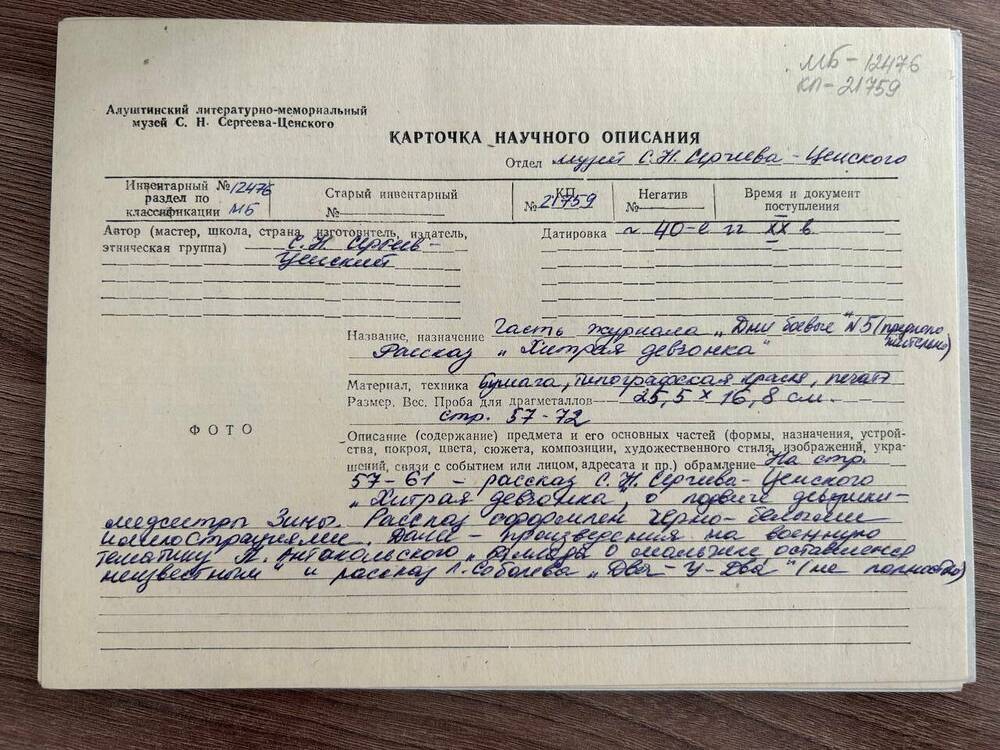 МБ-12476
КП-21759
Алуштинский литературно-мемориальный
музей С. Н. Сергеева-Ценского
КАРТОЧКА НАУЧНОГО ОПИСАНИЯ
Отдел музей С.Н. Сергеева-Ценского
Инвентарный № 12476
раздел по
классификации МБ
Старый инвентарный
№
КП
№ 21759
Негатив
№
Время и документ
поступления
Автор (мастер, школа, страна, изготовитель, издатель,
этническая группа) С.Н. Сергеев-
Ценский
Датировка 40-е гг XX в.
Название, назначение Часть журнала „Дни боевые" №5 (предполо
жительно)
Рассказ „Хитрая девчонка"
Материал, техника Бумага, типографская краска, печать
Размер. Вес. Проба для драгметаллов 25,5 х 16,8 см.
стр. 57-72
ФОТО
Описание (содержание) предмета и его основных частей (формы, назначения, устрой-
ства, покроя, цвета, сюжета, композиции, художественного стиля, изображений, укра-
шений, связи с событием или лицом, адресата и пр.) обрамление На стр.
57-61 - рассказ С.Н. Сергеева-Ценского
„Хитрая девчонка", о подвиге девушки-
медсестры Зины. Рассказ оформлен черно-белыми
иллюстрациями. Далее - произведения на военную
тематику П. Антокольского „Баллада о мальчике оставшемся
неизвестным" и рассказ Л. Соболева „Два-У-Два" (не полностью)